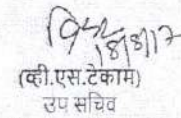 18/8/17
(व्ही.एस.टेकाम)
उप सचिव